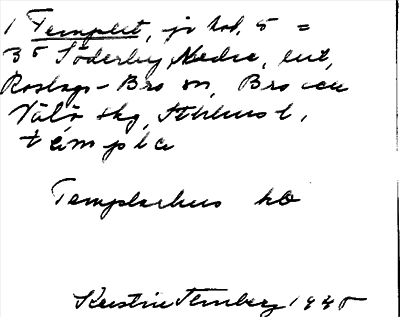 1 Templet, jo kol. 5 =
3⁵ Söderby, Nedre, ent,
Roslags-Bro sn, Bro och
Vätö skg, Sthlms l,
témpla
Templarhus
Kerstin Ternberg 1945